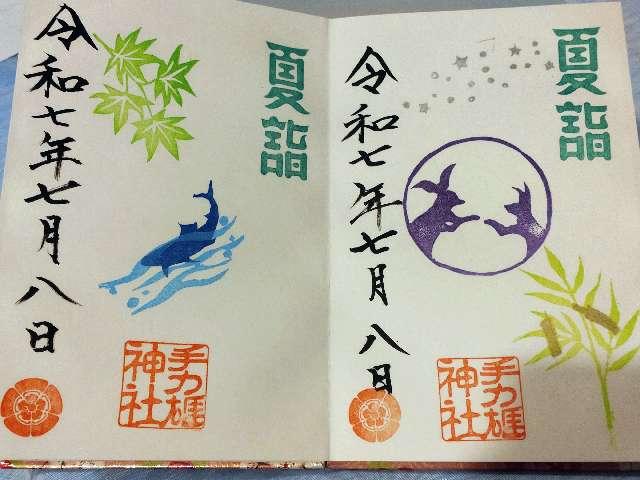 夏詣
令和七年七月八日
手力雄
神社
夏詣
令和七年七月八日
手力雄
神社